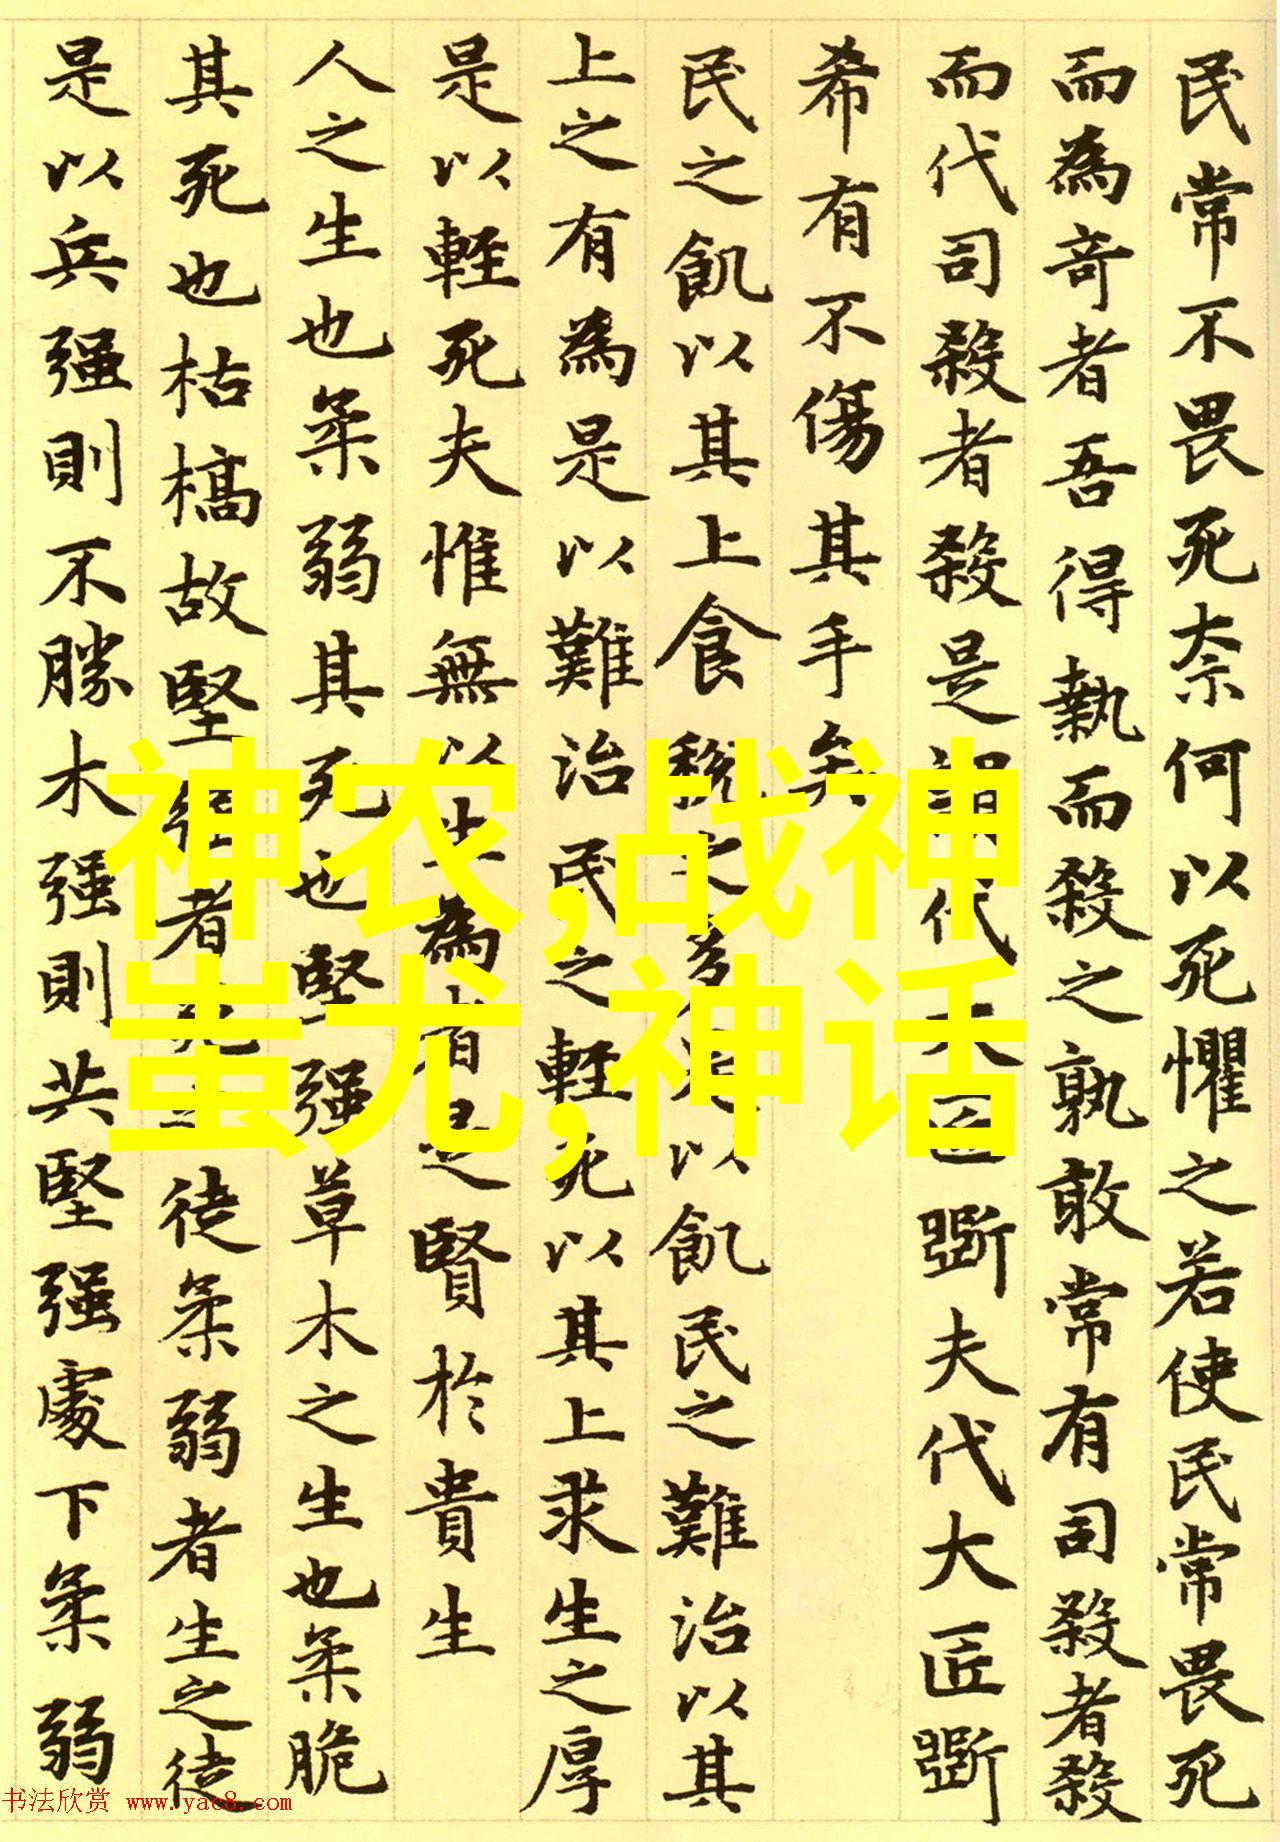 民常不畏死柰何以死懼之若使民常畏死
而為竒者吾得執而殺之孰敢常有司殺者殺
而代司殺者殺是謂代大匠斲夫代大匠斲
希有不傷其手矣
民之飢以其上食稅之多是以飢民之難治以其
上之有為是以難治民之輕死以其上求生之厚
是以輕死夫惟無以生為者是賢於貴生
人之生也柔弱其死也堅强草木之生也柔脆
其死也枯槁故堅强者死之徒柔弱者生之徒
是以兵强則不勝木强則共堅强處下柔弱
神农,战神
蚩尤,神话
书法欣赏 www.yac8.com